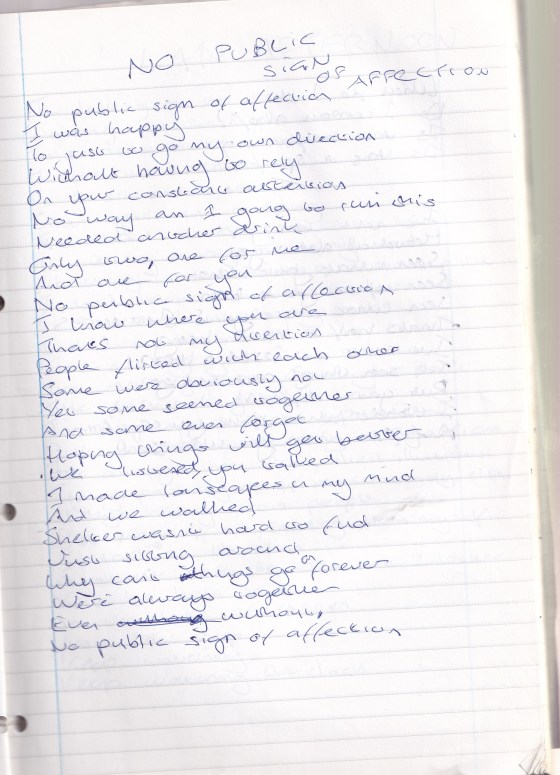 NO PUBLIC
SIGN
OF AFFECTION
No public sign of affection
I was happy
To just to go my own direction
Without having to rely
On your constant attention
No way am I going to run this
Needed another drink
Only two, one for me
And one for you
No public sign of affection
I know where you are
Thats not my direction
People flirted with each other
Some were obviously not
Yet some seemed together
And some even forgot
Hoping things will get better
We listened, you talked
I made landscapes in my mind
And we walked
Shelter wasnt hard to find
Just sitting around
Why cant things go on forever
Were always together
Even without,
No public sign of affection